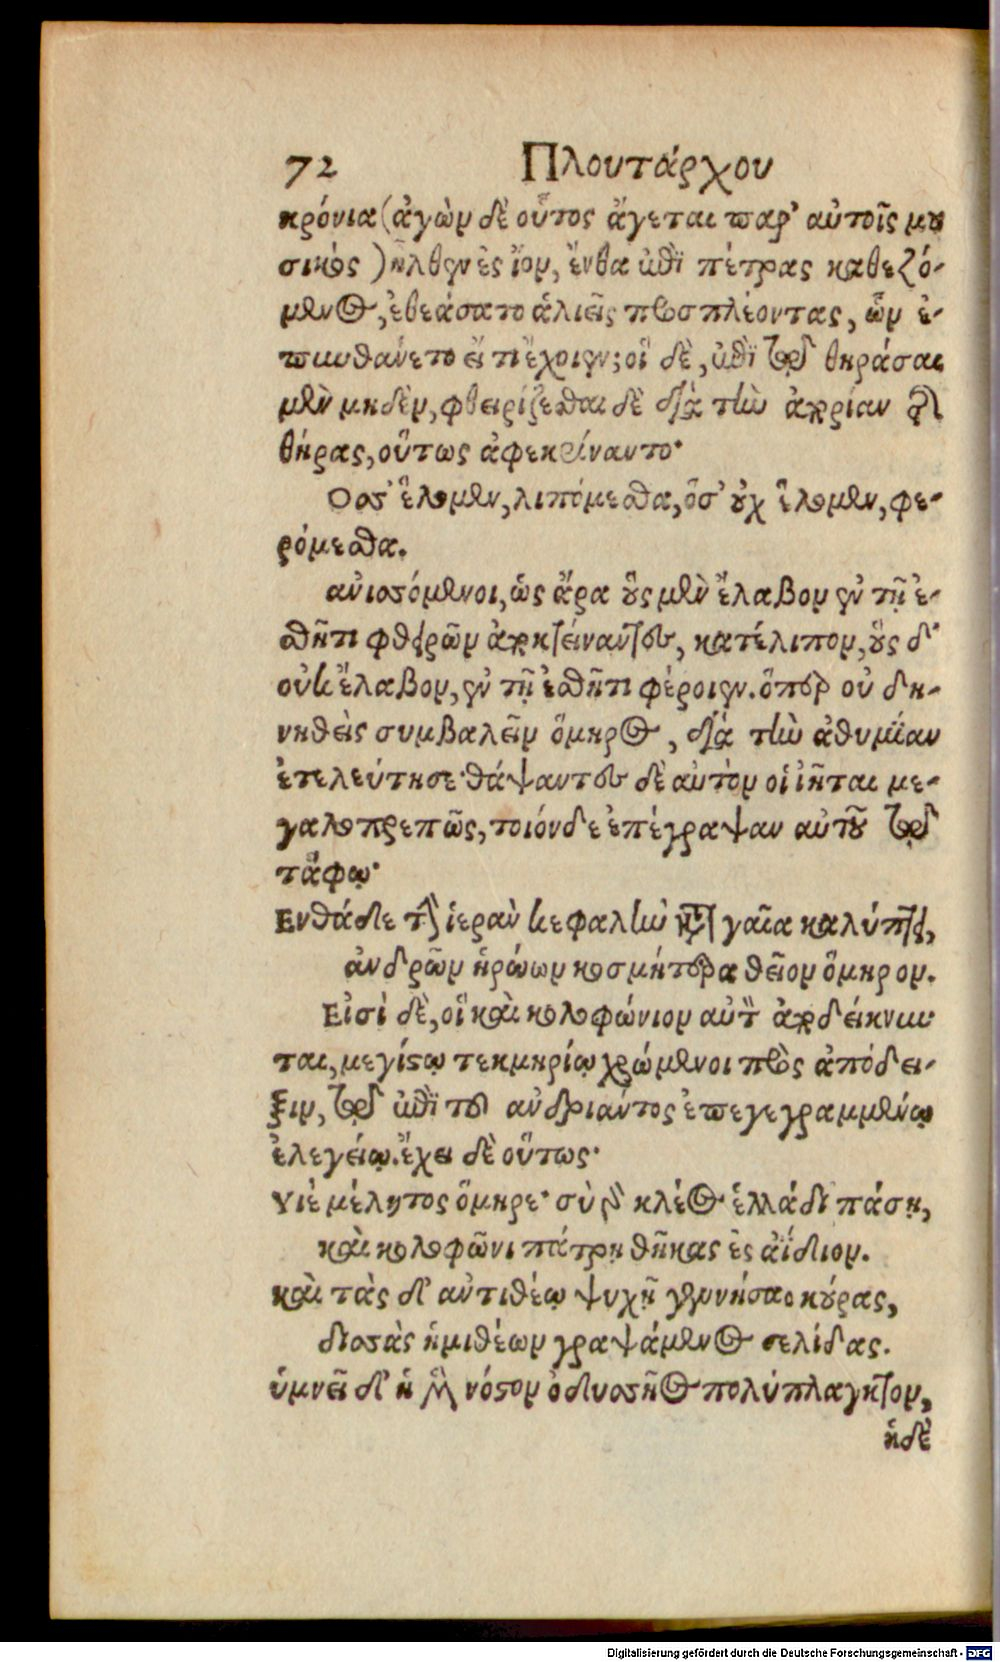 72 Πλουτάρχου
κρόνια (ἀγὼν δὲ οὗτος ἄγεται παρ' αὐτοῖς μου
σικὸς) ἦλθεν ἐς ἴον, ἔνθα ἐπὶ πέτρας καθεζό-
μενος, ἐθεάσατο ἁλιεῖς προσπλέοντας, ὧν ἐ-
πυνθάνετο εἴ τι ἔχοιεν; οἳ δὲ, ἐπὶ τῷ θηράσαι
μὲν μηδὲν, φθειρίζεσθαι δὲ διὰ τὴν ἀπορίαν τῆς
θήρας, οὕτως ἀπεκρίναντο·
Οσσ' ἕλομεν, λιπόμεσθα, ὅσ' οὐχ ἕλομεν, φε-
ρόμεσθα.
αἰνισσόμενοι, ὡς ἄρα οὓς μὲν ἔλαβον ἐν τῇ ἐ-
σθῆτι φθειρῶν ἀποκτείναντες, κατέλιπον, οὓς δ'
οὐκ ἔλαβον, ἐν τῇ ἐσθῆτι φέροιεν. ὅπερ οὐ δη-
νηθεὶς συμβαλεῖν ὅμηρος, διὰ τὴν ἀθυμίαν
ἐτελεύτησε· θάψαντες δὲ αὐτὸν οἱ ἰῆται με-
γαλοπρεπῶς, τοιόνδε ἐπέγραψαν αὐτοῦ τῷ
τάφῳ·
Ενθάδε τὴν ἱερὰν κεφαλὴν κατὰ γαῖα καλύπτει,
ἀνδρῶν ἡρώων κοσμήτορα θεῖον ὅμηρον.
Εἰσὶ δὲ, οἳ καὶ κολοφώνιον αὐτὸν ἀποδείκνυν
ται, μεγίστῳ τεκμηρίῳ χρώμενοι πρὸς ἀπόδει-
ξιν, τῷ ἐπὶ τοῦ ἀνδριάντος ἐπεγεγραμμένῳ
ἐλεγείῳ. ἔχει δὲ οὕτως·
Υἱὲ μέλητος ὅμηρε· σὺ γὰρ κλέος ἑλλάδι πάσῃ,
καὶ κολοφῶνι πάτρῃ θῆκας ἐς ἀΐδιον.
καὶ τὰς δ' ἀντιθέῳ ψυχῇ γεννήσαο κούρας,
δισσὰς ἡμιθέων γραψάμενος σελίδας.
ὑμνεῖ δ' ἡ μὲν νόστον ὀδυσσῆος πολύπλαγκτον,
ἡδὲ
Digitalisierung gefördert durch die Deutsche Forschungsgemeinschaft - DFG